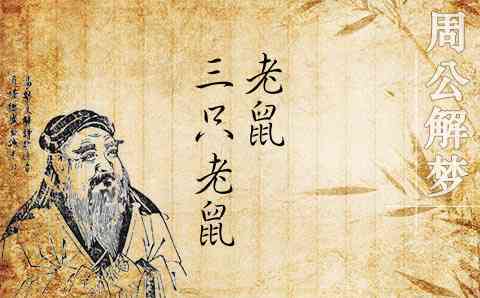 周公解梦
老鼠
三只老鼠